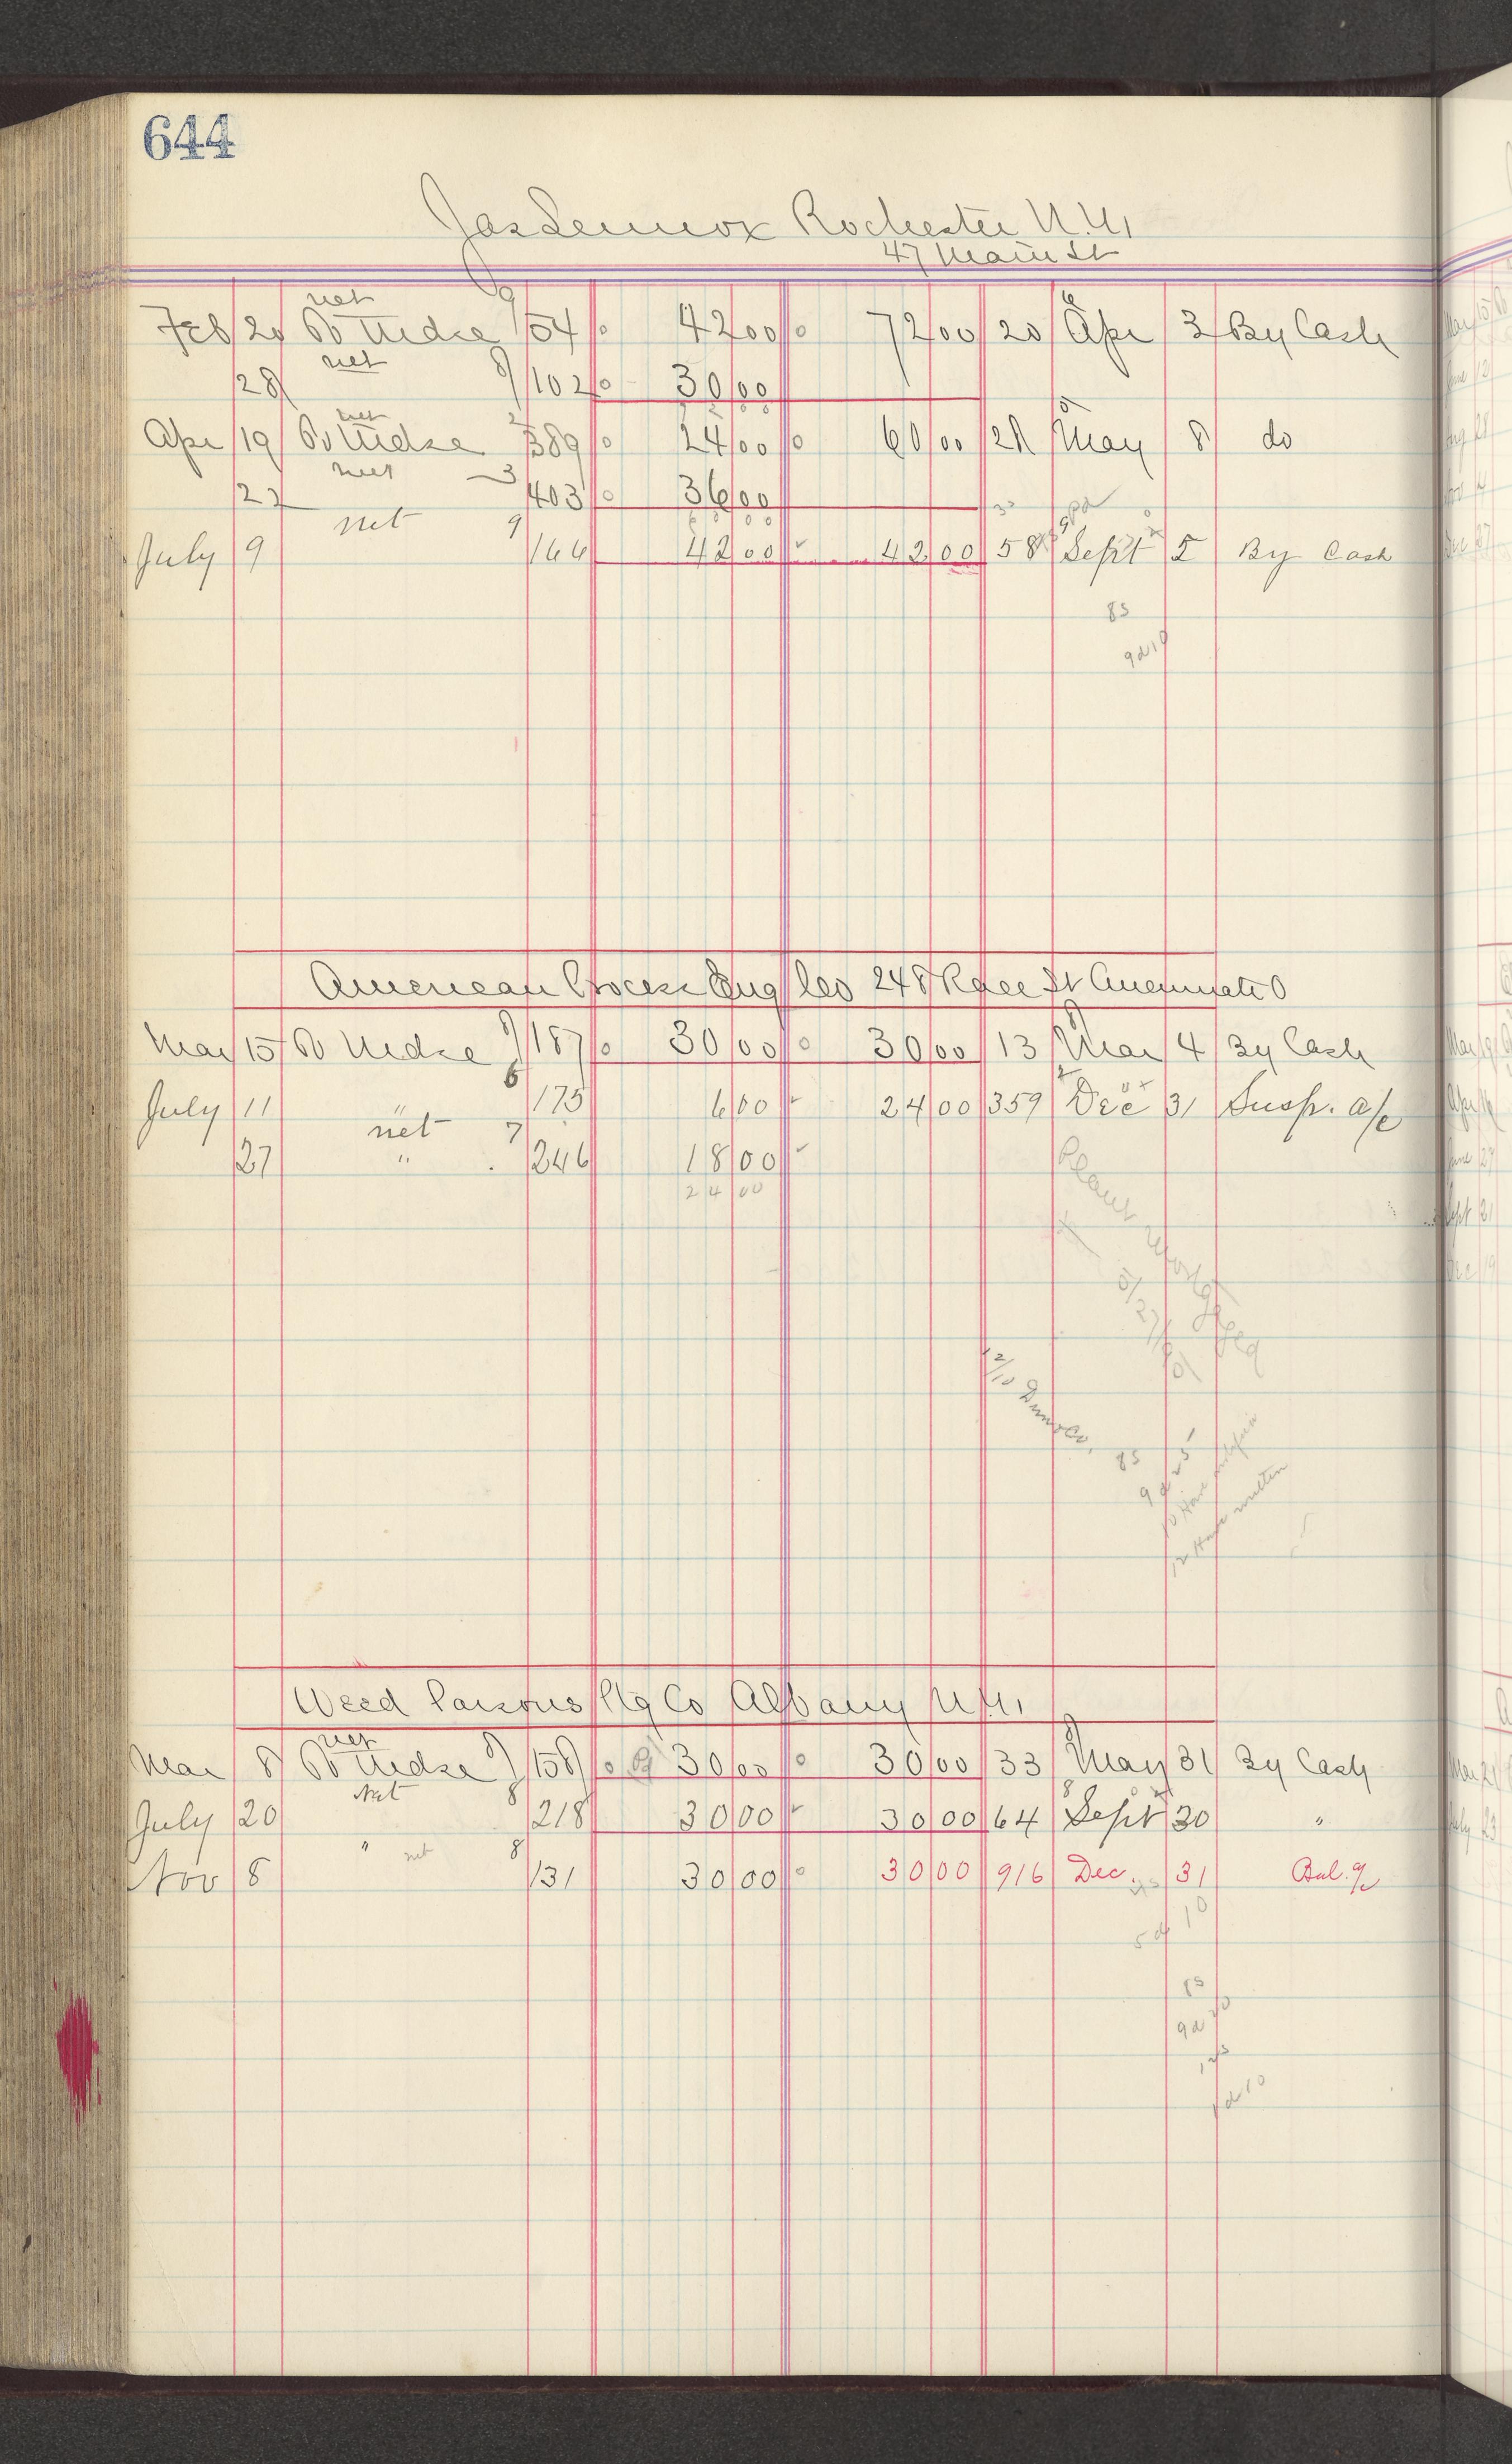 644
Jas Lennox Rochester N.Y.
47 Main St
net 9 6
Feb 20 To Mdse 54 42 00 72 00 20 Apr 3 By Cash
net 8
28 102 30 00
net 2 5
Apr 19 To Mdse 389 24 00 60 00 28 May 8 do
net 3
22 403 36 00
net 9 9
July 9 166 42 00 42 00 58 Sept 5 By Cash
8s
9d10
American Process Eng Co 248 Race St Cincinnati O
Mar 15 To Mdse 8 187 30 00 30 00 13 Mar 4 By Cash
6
July 11 " 175 6 00 24 00 359 Dec 31 Susp. a/c
net 7
27 " 246 18 00
24 00
Plant mortgaged
5/27/01
12/10 Dun & Co.
8s
9d25
10 Have
12 Have written
Weed Parsons Ptg Co Albany N.Y.
net
Mar 8 To Mdse 8 158 30 00 30 00 33 May 31 By Cash
Net 8 8
July 20 218 30 00 30 00 64 Sept 30 "
" net 8
Nov 8 131 30 00 30 00 916 Dec. 31 Bal. a/c
5d10
8s
9d10
1d10